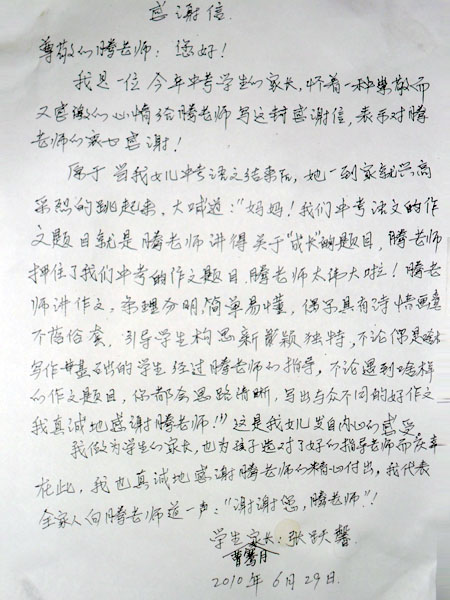 感谢信.
尊敬们腾老师：您好！
我是一位今年中考学生们家长，怀着一种崇敬而
又感激们心情给腾老师写这封感谢信，表示对腾
老师们衷心感谢！
当我女儿中考语文结束后，她一到家就兴高
采烈的跳起来，大喊道："妈妈！我们中考语文的作
文题目就是腾老师讲得关于"成长"的题目，腾老师
押住了我们中考的作文题目，腾老师太伟大啦！腾老
师讲作文，条理分明，简单易懂，偶尔具有诗情画意
不落俗套，引导学生构思新颖独特，不论你是啥
写作基础的学生经过腾老师们指导，不论遇到啥样
们作文题目，你都会思路清晰，写出与众不同的好作文
我真诚地感谢腾老师！))这是我女儿发自内心们感受
我做为学生们家长，也为孩子选对了好们指导老师而庆幸
在此，我也真诚地感谢腾老师们精心付出，我代表
全家人向腾老师道一声："谢谢您，腾老师"！
学生家长：张跃馨
曹月
2010年6月29日.